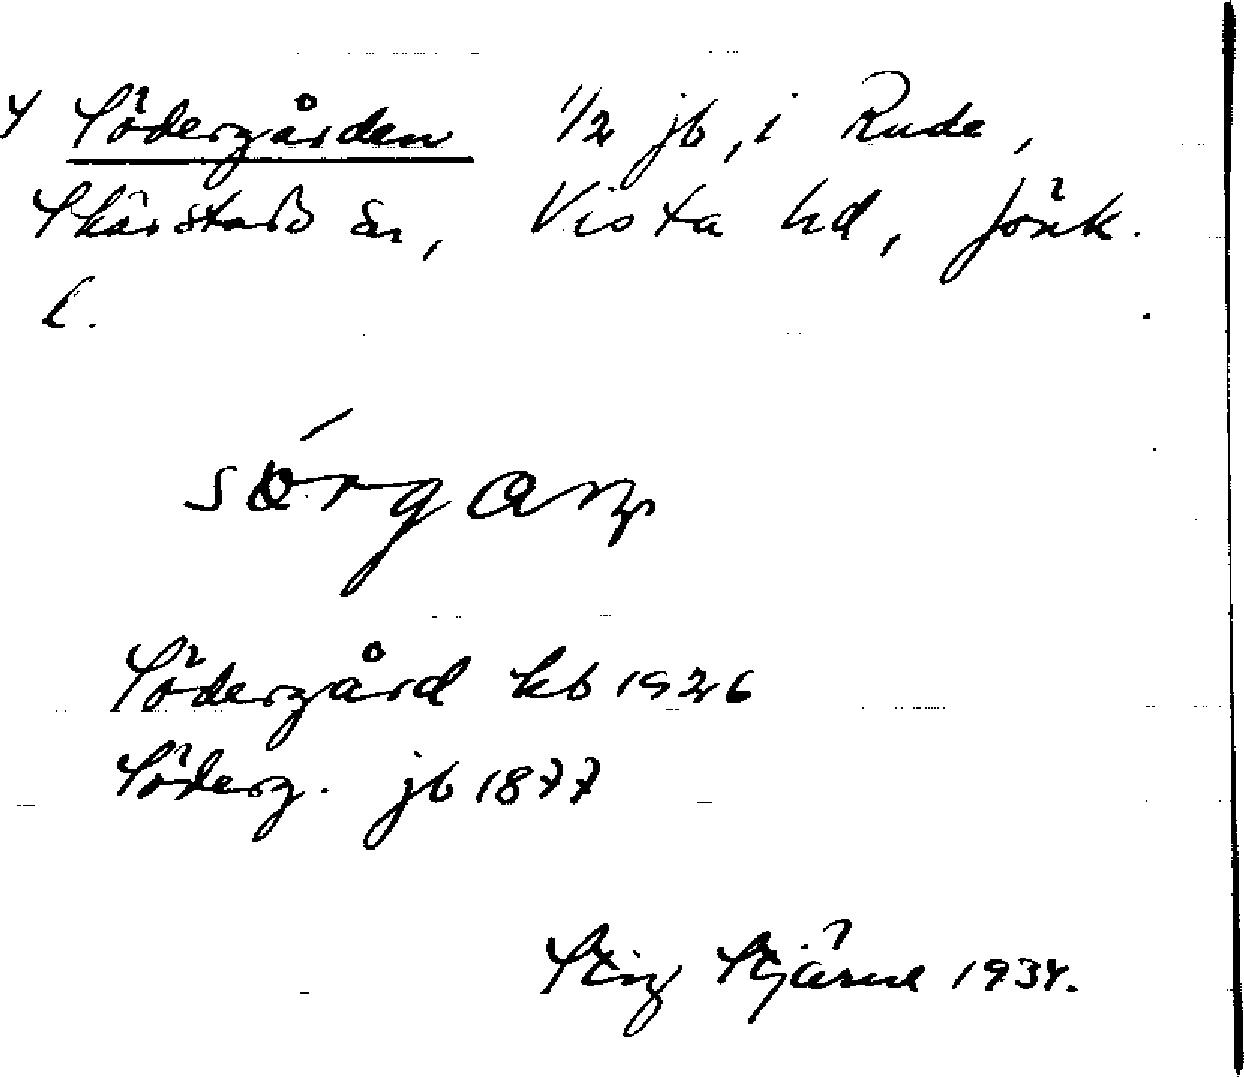 Y Södergården 1/2 jb, i Rude,
Skärstads sn, Vista hd, Jönk.
l.
Södergård kb 1926
Söderg. jb 1877
Stig Stjärne 1934.